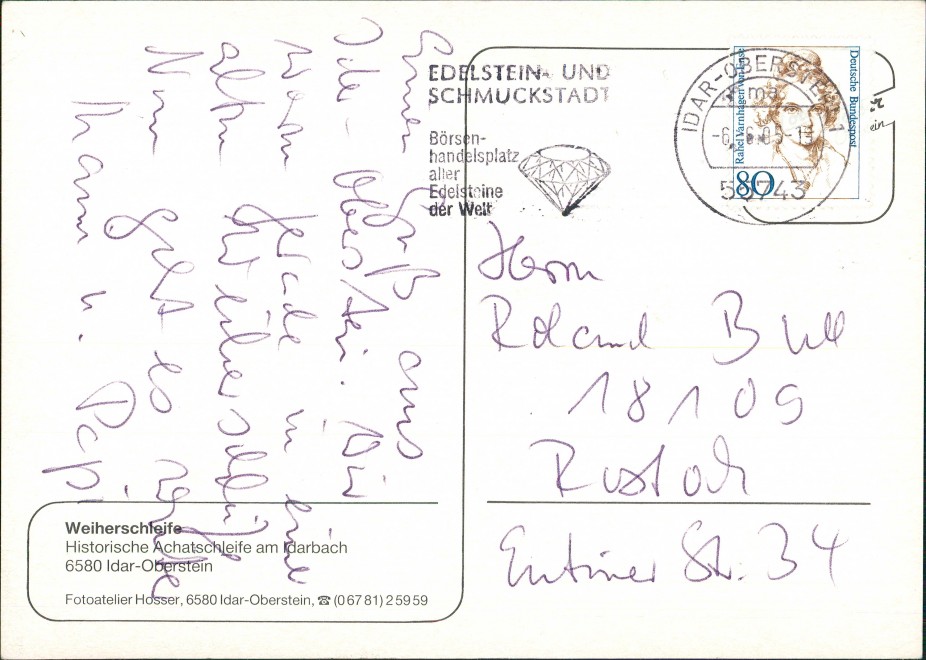 Einen Gruß aus
Idar-Oberstein. Wir
waren gerade in eine
alten
Nun geht es weiter
Mami u. Papi
EDELSTEIN- UND
SCHMUCKSTADT
Börsen-
handelsplatz
aller
Edelsteine
der Welt
IDAR-OBERSTEIN 1
ma
55743
Rahel Varnhagen von Ense
Deutsche Bundespost
80
Herrn
Roland
18109
Rostock
Eutiner Str. 34
Weiherschleife
Historische Achatschleife am Idarbach
6580 Idar-Oberstein
Fotoatelier Hosser, 6580 Idar-Oberstein, ☎ (0 67 81) 2 59 59